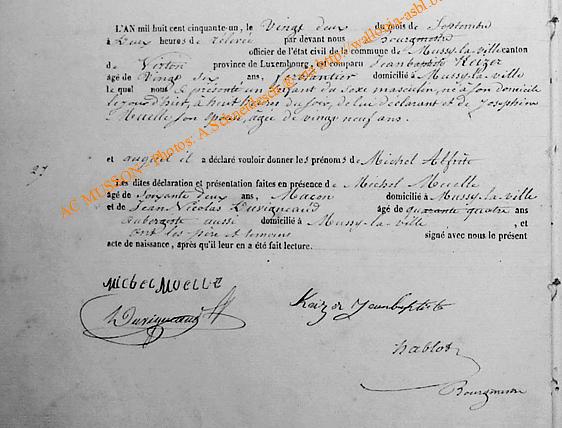 L'AN mil huit cent cinquante-un, le Vingt deux du mois de Septembre
à Deux heures de relevée par devant nous Bourgmestre
officier de l'état civil de la commune de Mussy-la-ville canton
de Virton province de Luxembourg, est comparu Jeanbaptiste Keizer
âgé de Vingt six ans, domicilié à Mussy-la-ville
le quel nous a présenté un enfant du sexe masculin, né à son domicile
à huit heures du soir, de lui déclarant et de Joséphine
Muelle son épouse, âgée de vingt neuf ans.
27
et auquel il a déclaré vouloir donner les prénoms de Michel Alfrède
Les dites déclaration et présentation faites en présence de Michel Muelle
âgé de soixante deux ans, Macon domicilié à Mussy-la-ville
et de Jean Nicolas Duvigneaud âgé de quarante quatre ans
aubergiste aussi domicilié à Mussy-la-ville, et
ont les père et témoins signé avec nous le présent
acte de naissance, après qu'il leur en a été fait lecture.
Michel Muelle
Duvigneaud
Keizer Jeanbaptiste
Nablot
AC MUSSON - Photos: A. via http://wallonia-asbl.